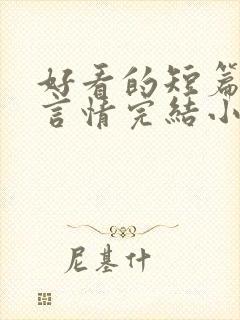 好看的短篇
言情完結小
尼基什